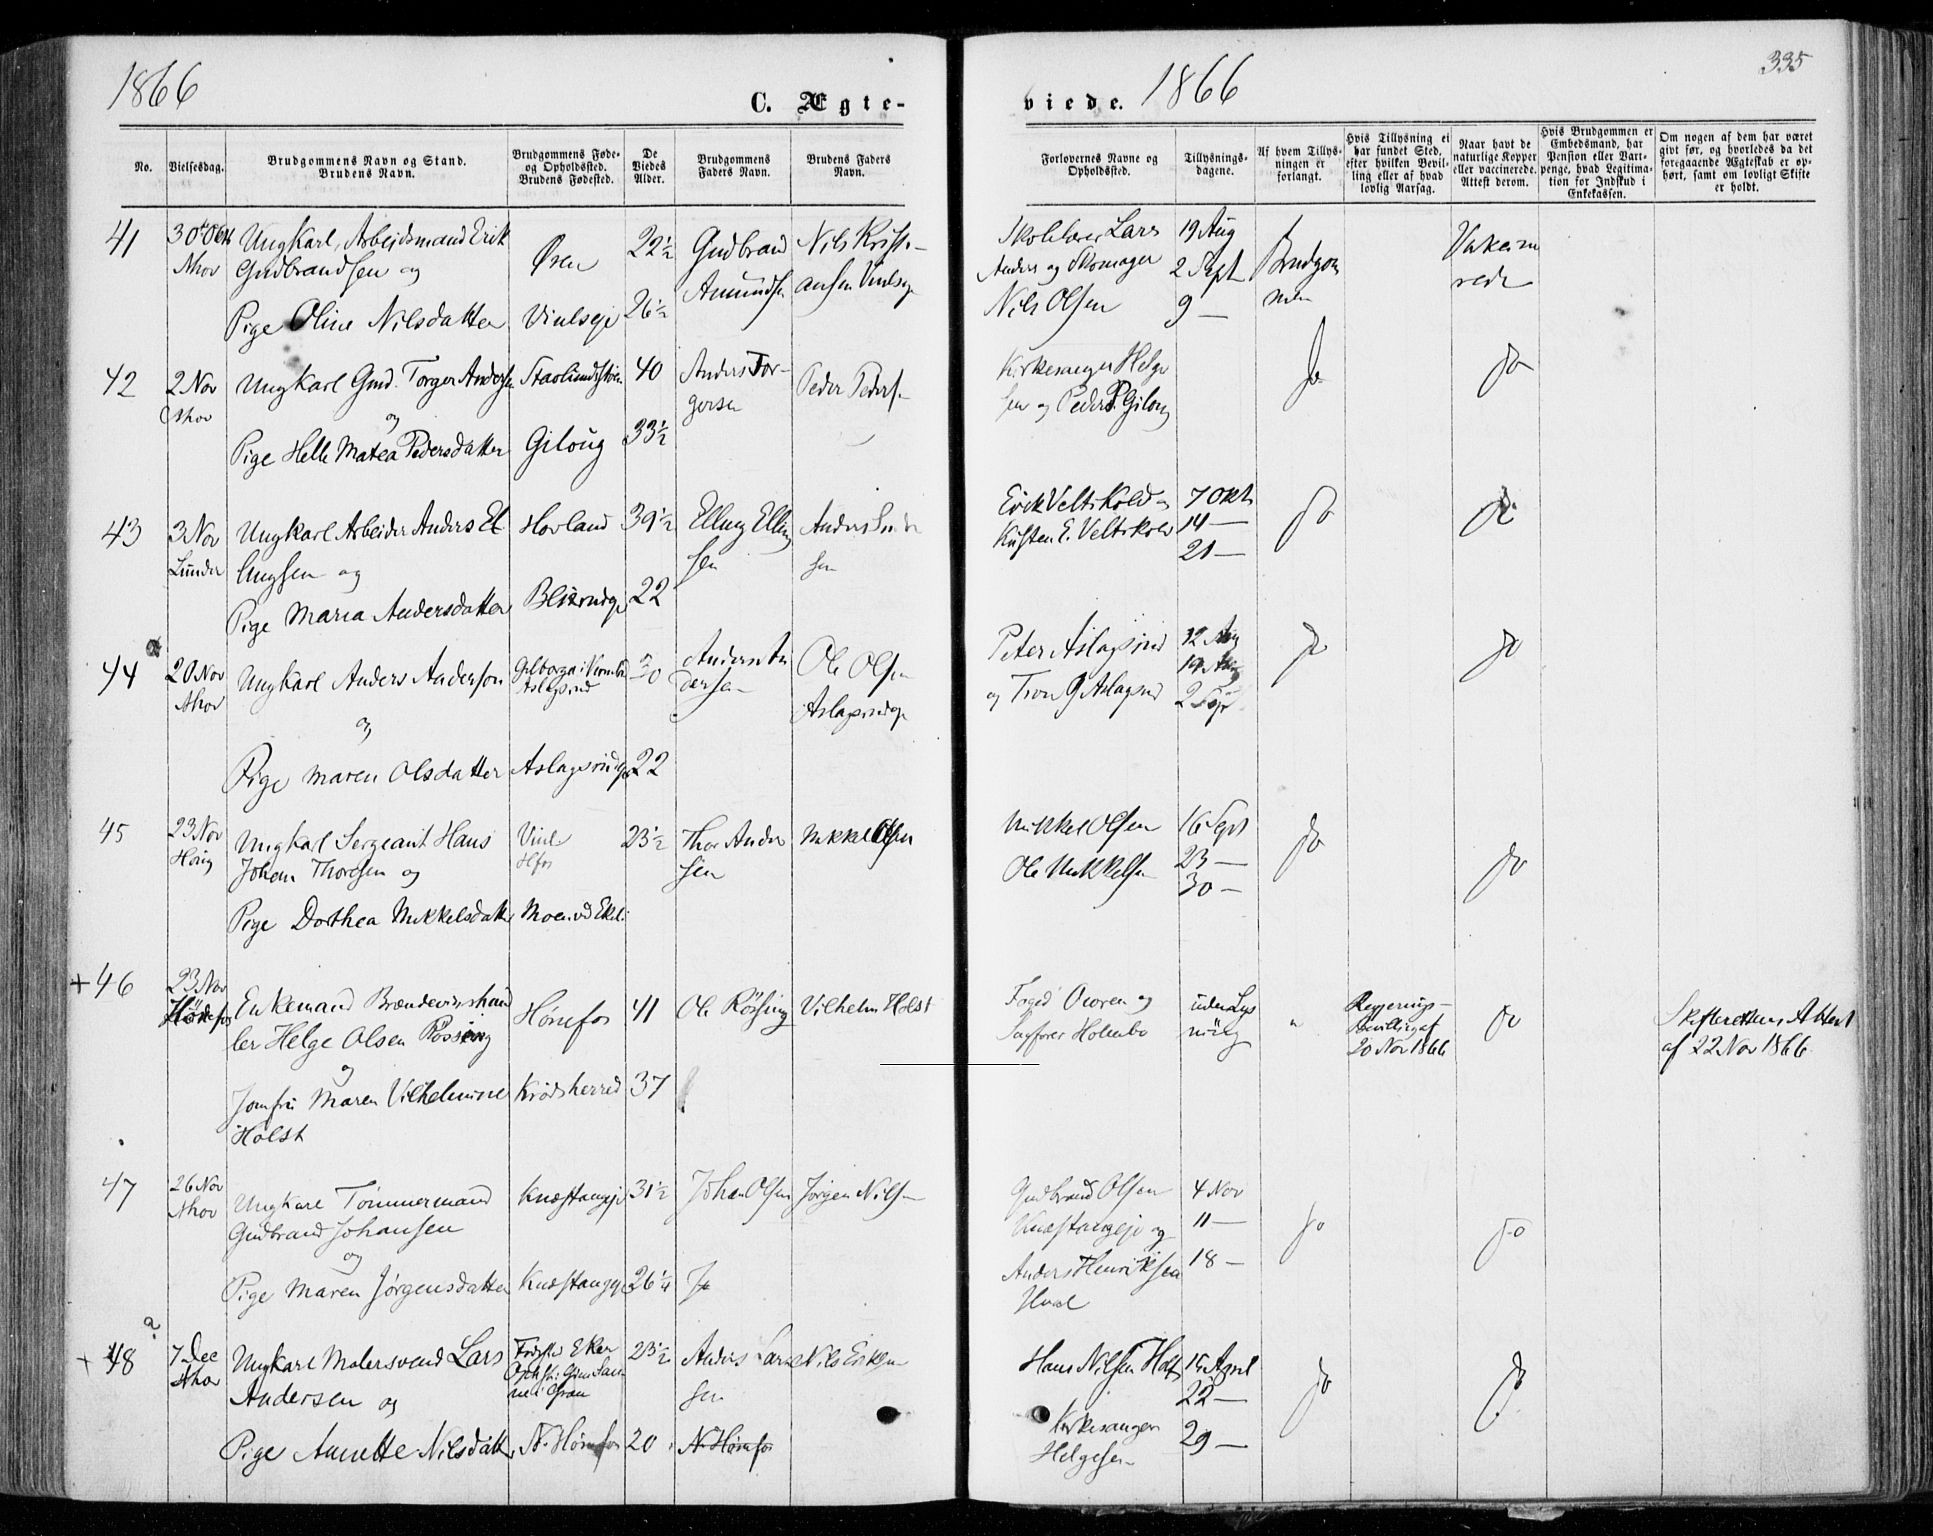 1866
C. Ægte-
viede. 1866
335
No.
Vielsesdag.
Brudgommens Navn og Stand.
Brudens Navn.
Brudgommens Føde-
og Opholdssted.
Brudens Fødested.
De
Viedes
Alder.
Brudgommens
Faders Navn.
Brudens Faders
Navn.
Forlovernes Navne og
Opholdsted.
Tillysnings-
dagene.
Af hvem Tillys-
ningen er
forlangt.
Hvis Tillysning ei
har fundet Sted,
efter hvilken Bevil-
ling eller af hvad
lovlig Aarsag.
Naar havt de
naturlige Kopper
eller vaccinerede.
Attest derom.
Hvis Brudgommen er
Embedsmand, har
Pension eller Vart-
penge, hvad Legitima-
tion for Indskud i
Enkekassen.
Om nogen af dem har været
givt før, og hvorledes da det
foregaaende Ægteskab er op-
hørt, samt om lovligt Skifte
er holdt.
41
30 Okt
Nhov
Ungkarl, Arbeidsmand Erik
Gudbrandsen og
Pige Oline Nilsdatter
Øren
Viulseje
22½
26½
Gudbrand
Amundsen
Nils Kristi-
ansen Viulseje
Skolelærer Lars
Anders og Skomager
Nils Olsen
19 Aug
2 Sept
9 —
Brudgom
men
Vakcine
rede
42
2 Nov
Nhov
Ungkarl Gmd. Torger Andersen
og
Pige Helle Matea Pedersdatter
Gjloug
40
33½
Anders Tor-
gersen
Peder Peders.
Kirkesanger Helge
sen og Peder P. Gjloug
Jo
Jo
43
3 Nov
Lunder
Ungkarl Arbeider Anders El
lingsen og
Pige Maria Andersdatter
Hovland
39½
22
Elling Elling
sen
Anders
sen
Erik Veltikold og
Kristen E. Veltikold
7 Okt
14 —
21 —
Jo
Jo
44
20 Nov
Nhov
Ungkarl Anders Anderson
og
Pige Maren Olsdatter
Aslagsrud
Aslagsrudeje
30
22
Anders An
dersen
Ole Olsen
Aslagsrudeje
Peter Aslagsrud
og Tron Aslagsrud
12 Aug
19 Aug
2 Sept
Jo
Jo
45
23 Nov
Ungkarl Sergeant Hans
Johan Thoresen og
Pige Dorthea Mikkelsdatter
Viul
Hfos
Moen vd Ekeli
23½
Thor Ander
sen
Mikkel Olsen
Mikkel Olsen
Ole Mikkelsen
16 Sept
23 —
30 —
Jo
Jo
+ 46
23 Nov
Hönefos
Enkemand Brændevinshand
ler Helge Olsen Røssing
og
Jomfru Maren Vilhelmine
Holst
Hönefos
Krödsherred
41
37
Ole Rössing
Vilhelm Holst
Foged Owren og
Sagfører Holmbo
uden Lys
ning
"
Regjerings-
Bevilling af
20 Nov 1866
Jo
Skifterettens Attest
af 22 Nov 1866.
47
26 Nov
Nhov
Ungkarl Tömmermand
Gudbrand Johansen
og
Pige Maren Jörgensdatter
Knæstangeje
Knæstangeje
31½
26¼
Johan Olsen
Jo
Jörgen Nilsen
Gudbrand Olsen
Knæstangeje og
Anders Henriksen
Hval
4 Nov
11 —
18 —
Jo
Jo
+ 48
7 Dec
Nhov
Ungkarl Malersvend Lars
Andersen og
Pige Anette Nilsdatter
Födest Eker
N. Hönefos
23½
20
Anders Lar
sen
N. Hönefos
Nils Eriksen
Hans Nilsen Holt
Kirkesanger
Helgesen
15 April
22 —
29 —
Jo
Jo